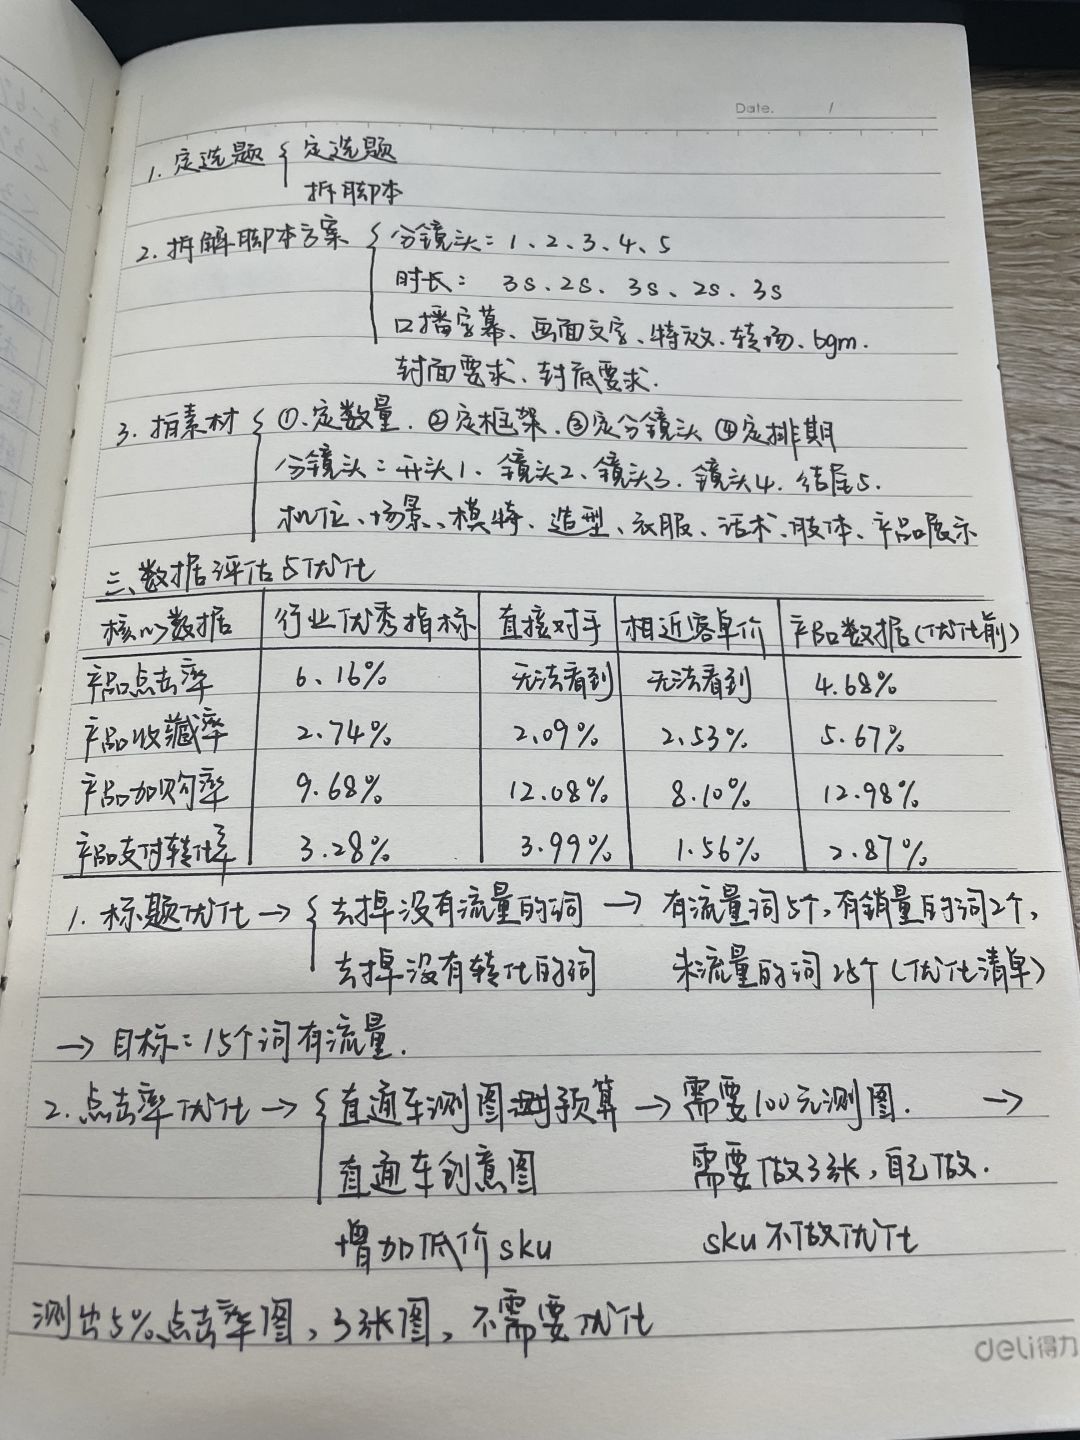 Date. /
1. 定选题 { 定选题
拆脚本
2. 拆解脚本方案 { 分镜头: 1、2、3、4、5
时长: 3s、2s、3s、2s、3s
口播字幕、画面文字、特效、转场、bgm.
封面要求、封底要求.
3. 拍素材 { ①定数量. ②定框架. ③定分镜头 ④定排期
分镜头: 开头1、镜头2、镜头3、镜头4、结尾5.
机位、场景、模特、造型、衣服、话术、肢体、产品展示
三、数据评估与优化
核心数据 行业优秀指标 直接对手 相近客单价 产品数据(优化前)
产品点击率 6.16% 无法看到 无法看到 4.68%
产品收藏率 2.74% 2.09% 2.53% 5.67%
产品加购率 9.68% 12.08% 8.10% 12.98%
产品支付转化率 3.28% 3.99% 1.56% 2.87%
1. 标题优化 → { 去掉没有流量的词 → 有流量词5个, 有销量的词2个,
去掉没有转化的词 未流量的词25个(优化清单)
→ 目标: 15个词有流量.
2. 点击率优化 → { 直通车测图预算 → 需要100元测图. →
直通车创意图 需要做3张, 自己做.
增加低价sku sku不做优化
测出5%点击率图, 3张图, 不需要优化
deli得力